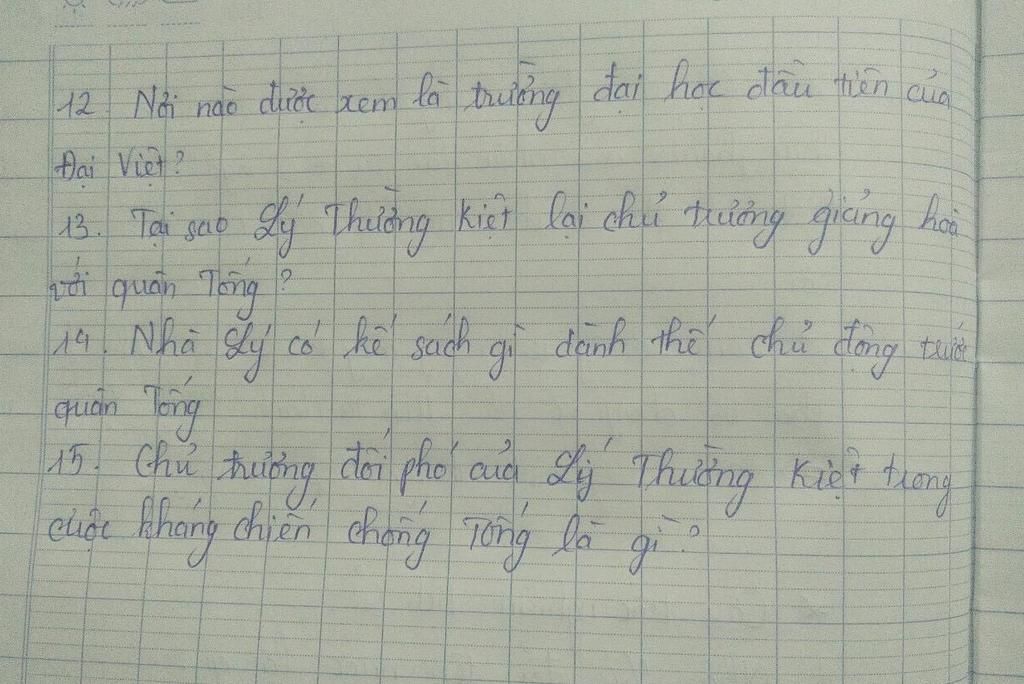 12. Nơi nào được xem là trường đại học đầu tiên của
Đại Việt?
13. Tại sao Lý Thường Kiệt lại chủ trương giảng hoà
với quân Tống?
14. Nhà Lý có kế sách gì dành thế chủ động trước
quân Tống
15. Chủ trương đối phó của Lý Thường Kiệt trong
cuộc kháng chiến chống Tống là gì?